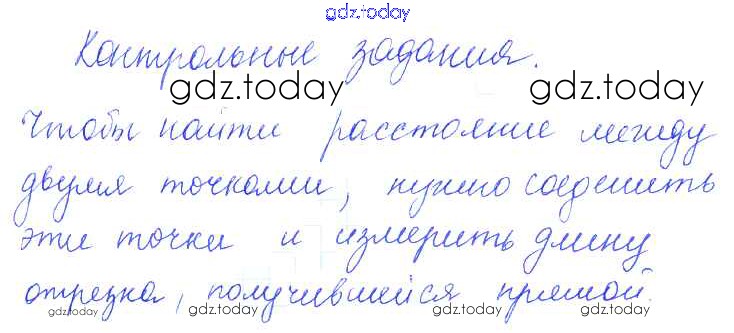 gdz.today
Контрольные задания.
gdz.today gdz.today
Чтобы найти расстояние между
двумя точками, нужно соеденить
gdz.today gdz.today
эти точки и измерить длину
отрезка, получившейся прямой.
gdz.today gdz.today